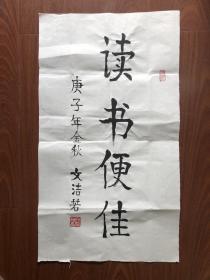 读书便佳
庚子年金秋 文洁若